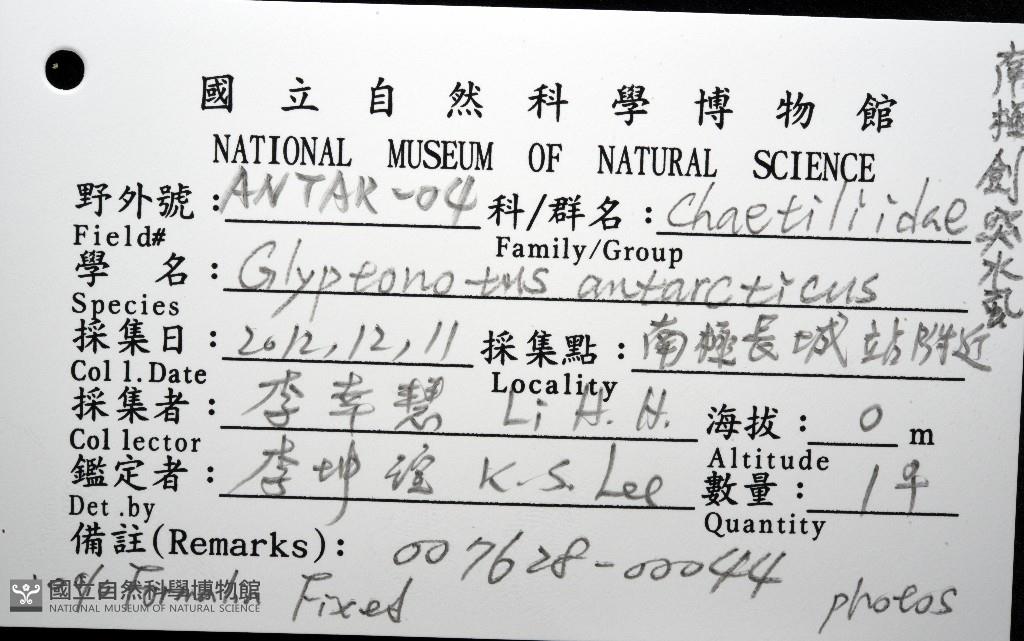 國立自然科學博物館
NATIONAL MUSEUM OF NATURAL SCIENCE
野外號：ANTAR-04 科/群名：Chaetiliidae
Field# Family/Group
學 名：Glyptonotus antarcticus
Species
採集日：2012,12,11 採集點：南極長城站附近
Coll.Date Locality
採集者：李幸慧 Li H.H. 海拔：0 m
Collector Altitude
鑑定者：李坤瑄 K.S. Lee 數量：1
Det.by Quantity
備註(Remarks)：007628-00044
Formalin Fixed photos
南極劍突水虱
國立自然科學博物館
NATIONAL MUSEUM OF NATURAL SCIENCE